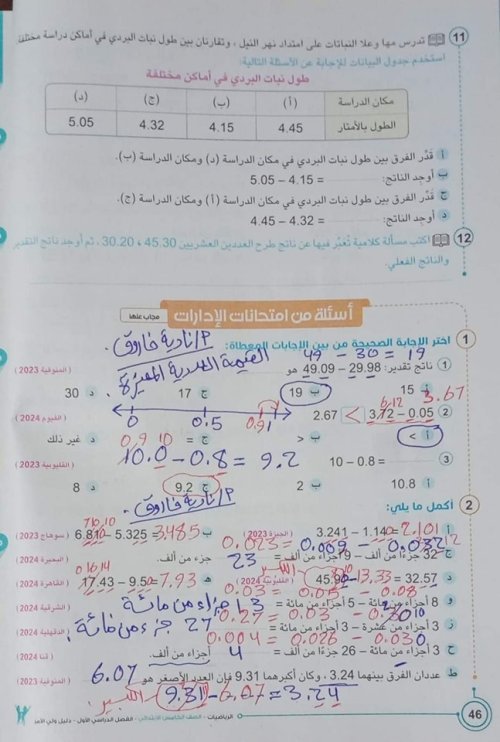 11 تدرس مها وعلا النباتات على امتداد نهر النيل، وتقارنان بين طول نبات البردي في أماكن دراسة مختلفة
استخدم جدول البيانات للإجابة عن الأسئلة التالية:
طول نبات البردي في أماكن مختلفة
مكان الدراسة (أ) (ب) (ج) (د)
الطول بالأمتار 4.45 4.15 4.32 5.05
أ قدّر الفرق بين طول نبات البردي في مكان الدراسة (د) ومكان الدراسة (ب).
ب أوجد الناتج: 5.05 – 4.15 =
ج قدّر الفرق بين طول نبات البردي في مكان الدراسة (أ) ومكان الدراسة (ج).
د أوجد الناتج: 4.45 – 4.32 =
12 اكتب مسألة كلامية تُعبّر فيها عن ناتج طرح العددين العشريين 45.30 ، 30.20، ثم أوجد ناتج التقدير
والناتج الفعلي.
أسئلة من امتحانات الإدارات مجاب عنها
1 اختر الإجابة الصحيحة من بين الإجابات المعطاة:
م/نادية فاروق
49 – 30 = 19
القيمة العددية المميزة
1 ناتج تقدير: 49.09 – 29.98 هو (المنوفية 2023)
أ 15 ب 19 ج 17 د 30
6 12 3.67
2 3.72 – 0.05 < 2.67 (الفيوم 2024)
0 0.5 0.9 1
أ > ب < ج = د غير ذلك
0 9 10
10.0 – 0.8 = 9.2
3 10 – 0.8 = (القليوبية 2023)
أ 10.8 ب 2 ج 9.2 د 8
2 أكمل ما يلي:
م/نادية فاروق
أ 3.241 – 1.140 = 2.101 (الجيزة 2023) ب 6.810 – 5.325 3.485 (سوهاج 2023)
0.023 = 0.009 – 0.032
ج 32 جزءًا من ألف – 9 أجزاء من ألف = 23 جزء من ألف. (البحيرة 2024)
د 45.90 – 13.33 = 32.57 (القليوبية 2024) هـ 17.43 – 9.50 = 7.93 (القاهرة 2024)
الكبير
0.03 = 0.05 – 0.08
و 8 أجزاء من مائة – 5 أجزاء من مائة = 3 أجزاء من مائة (الشرقية 2024)
0.27 = 0.03 – 0.30
ز 3 أجزاء من عشرة – 3 أجزاء من مائة = 27 جزء من مائة. (الدقهلية 2024)
0.004 = 0.026 – 0.030
ح 3 أجزاء من مائة – 26 جزءًا من ألف = 4 أجزاء من ألف. (قنا 2024)
ط عددان الفرق بينهما 3.24، وكان أكبرهما 9.31 فإن العدد الأصغر هو 6.07 (المنوفية 2023)
الكبير 9.31 – 6.07 = 3.24
الرياضيات - الصف الخامس الابتدائي - الفصل الدراسي الأول - دليل ولي الأمر
46